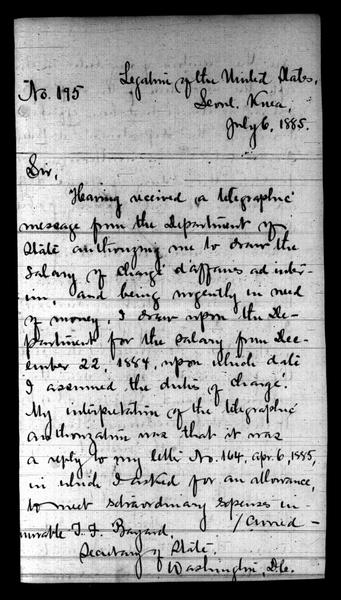 Legation of the United States,
Seoul. Korea,
No. 195
July 6, 1885.
Sir,
Having received a telegraphic
message from the Department of
State authorizing me to draw the
salary of chargé d'affaires ad inter-
im, and being urgently in need
of money, I draw upon the De-
partment for the salary from Dec-
ember 22, 1884, upon which date
I assumed the duties of Chargé.
My interpretation of the telegraphic
authorization was that it was
a reply to my letter No. 164, apr. 6, 1885,
in which I asked for an allowance,
to meet extraordinary expenses in-
/curred -
norable T. F. Bayard,
Secretary of State.
Washington,